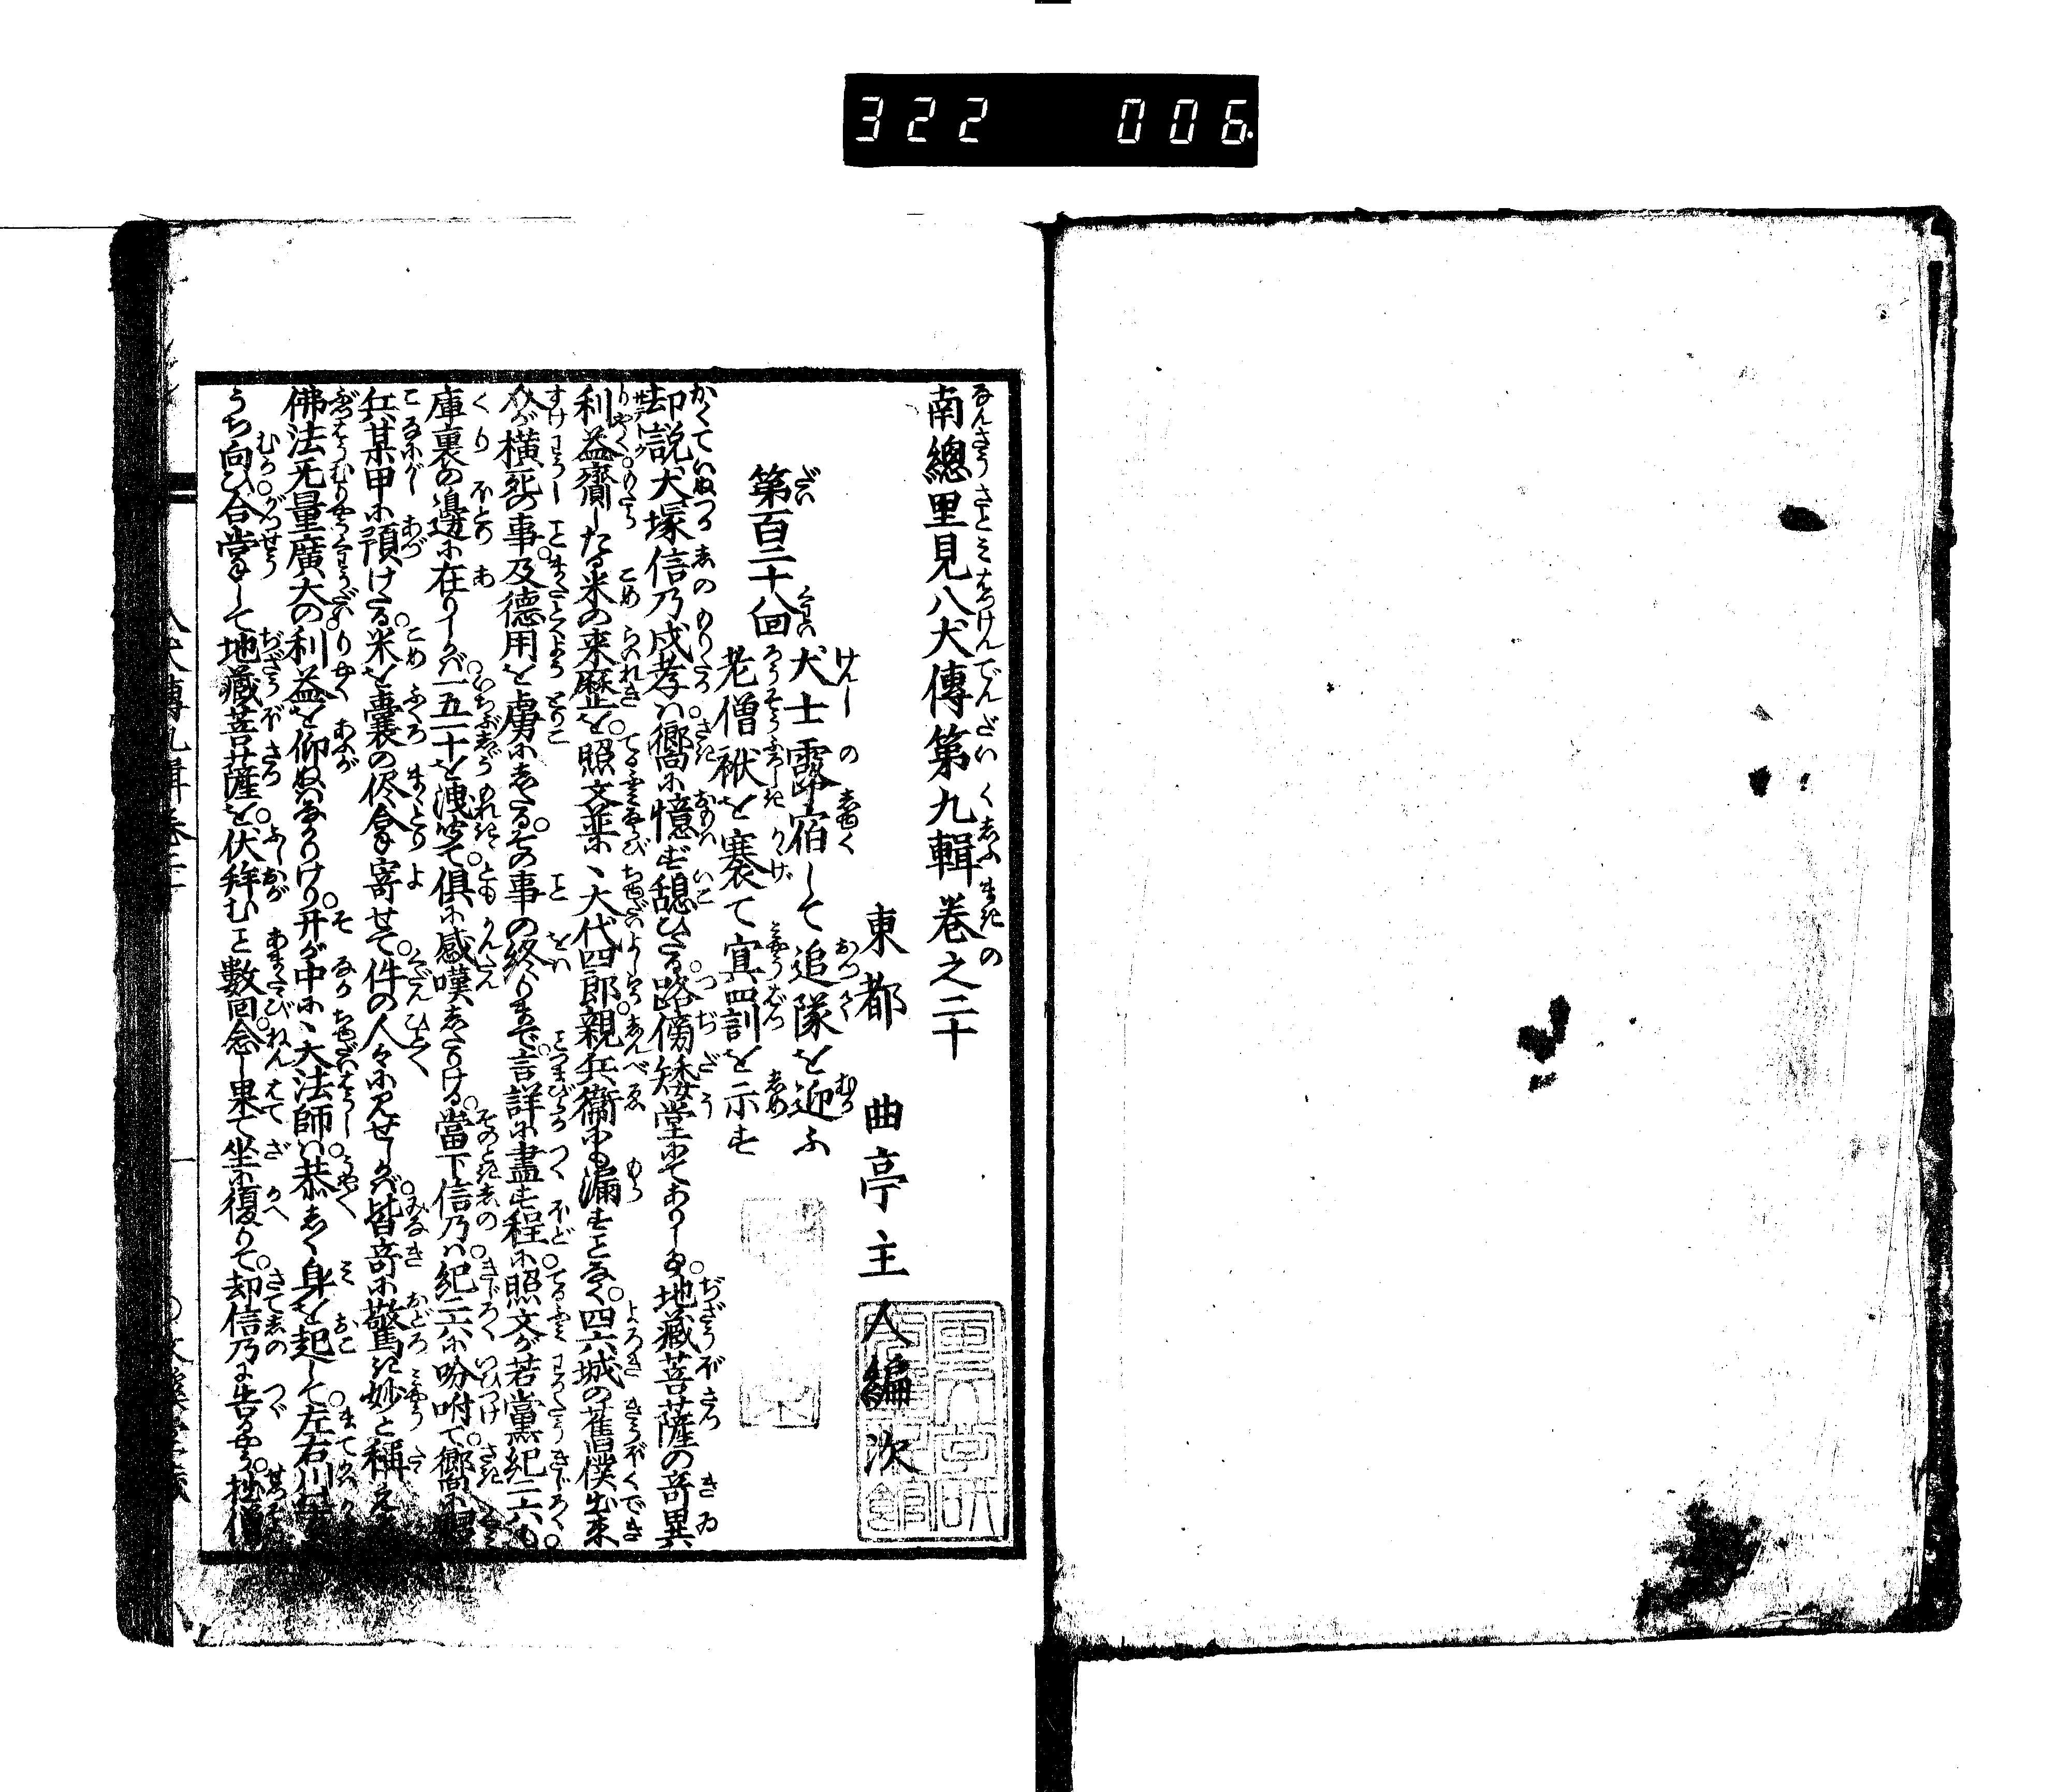 322 006
南總里見八犬傳第九輯卷之二十
東都 曲亭主人編次
第百二十八回
犬士露宿して追隊を迎ふ
老僧袱を褰て冥罰訓を示す
却説犬塚信乃戍孝ハ嚮に憶ず憩ひたる路傍矮堂にてありし時地藏菩薩の奇異
利益齎したる米の来歷を照文並に、大代四郎親兵衞にも漏すことなく四六城の舊僕出来
介が横死の事及德用を虜にしたるその事の終りまで言詳に盡す程に照文が若黨紀二六も
庫裏の邊に在りしかバ一五一十を洩聞て俱に感嘆したりける當下信乃ハ紀二六に吩咐て嚮に
兵某甲に預けたる米を囊の侭拿寄せて件の人々に見せしかバ皆奇に驚き妙と稱え
佛法無量廣大の利益を仰ぬハなかりけり开が中に、大法師ハ恭しく身を起して左右川
うち向ひ合掌して地藏菩薩を伏拜むこと數回念じ果て坐に復りて却信乃に告るやう拙僧